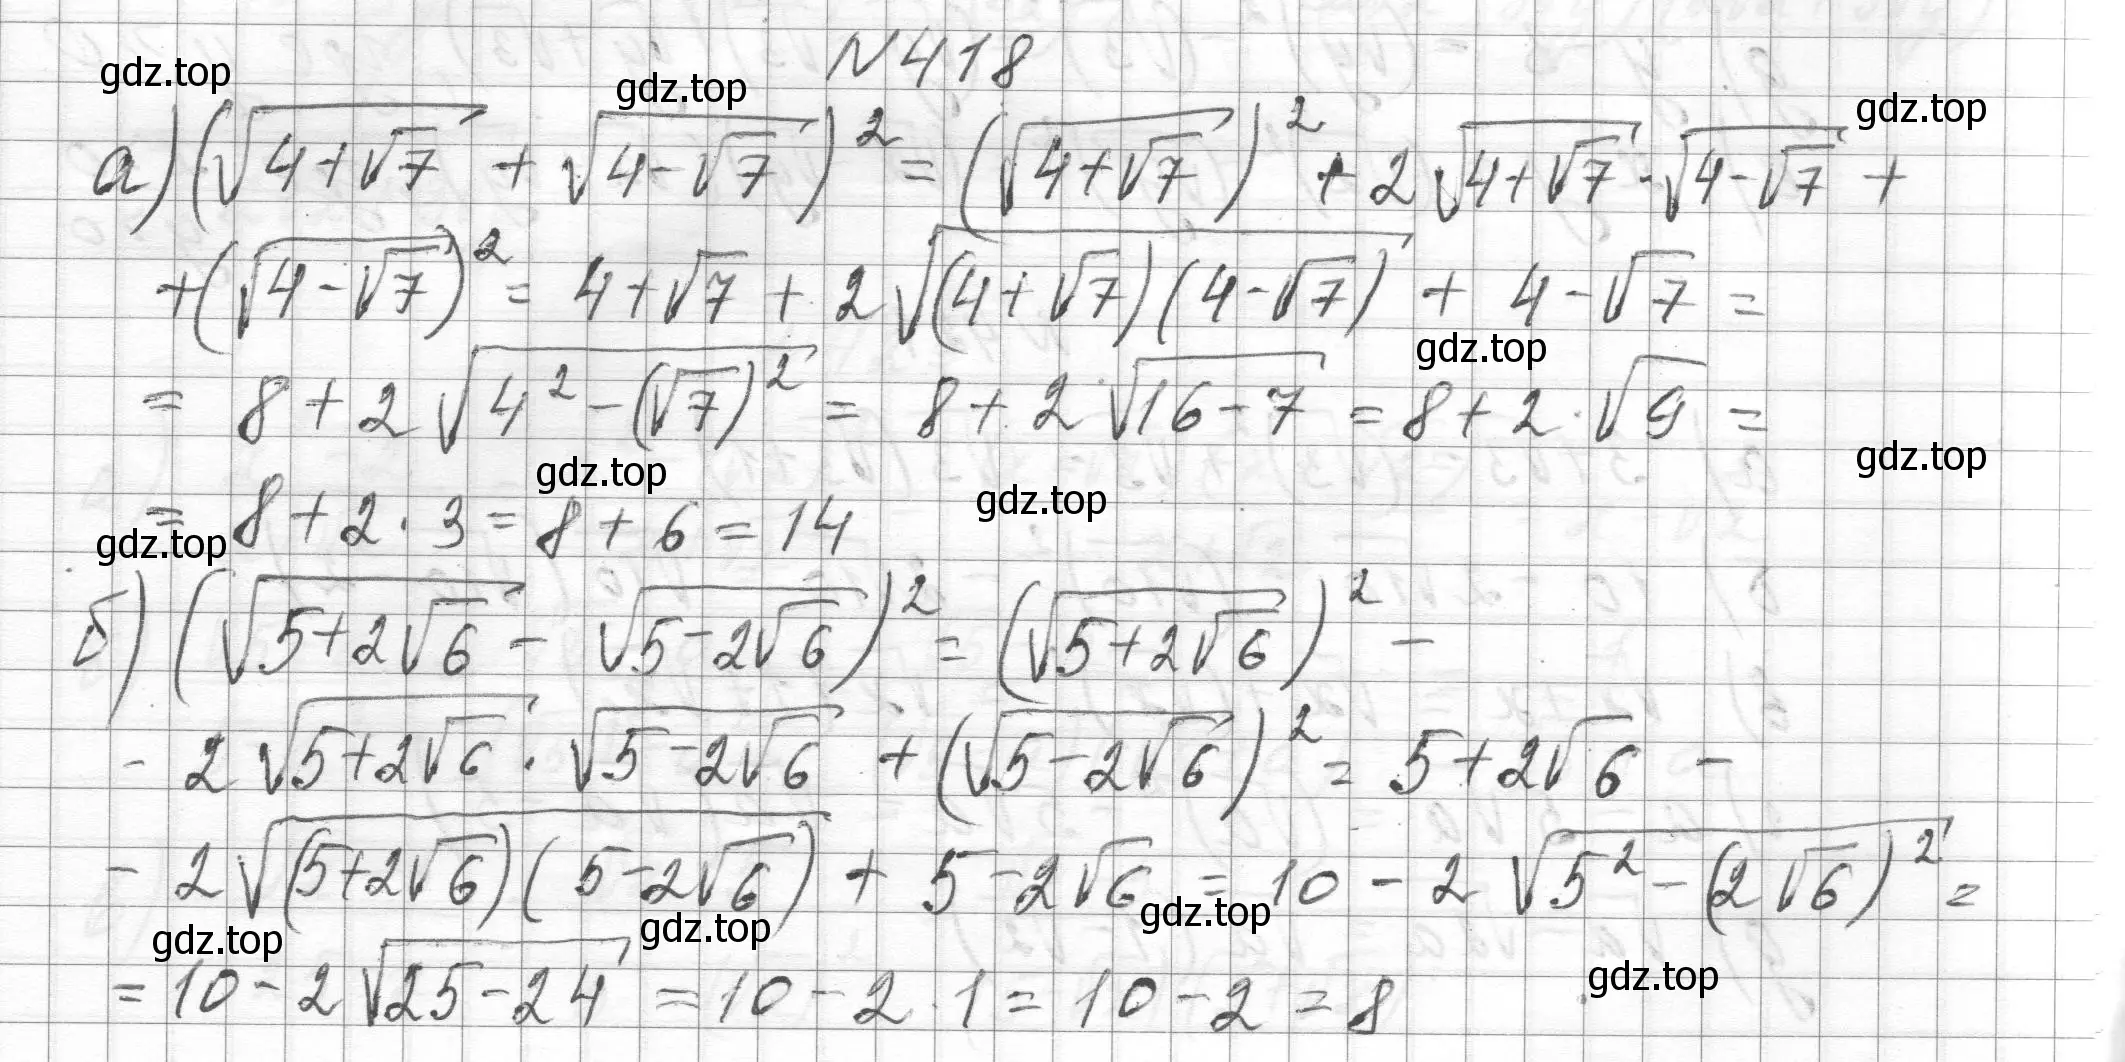 N418
gdz.top
gdz.top
gdz.top
а) (√(4+√7) + √(4-√7))² = (√(4+√7))² + 2√(4+√7) · √(4-√7) +
+ (√(4-√7))² = 4+√7 + 2√((4+√7)(4-√7)) + 4-√7 =
gdz.top
= 8+2√(4²-(√7)²) = 8+2√(16-7) = 8+2·√9 =
gdz.top
gdz.top
gdz.top
= 8+2·3 = 8+6 = 14
gdz.top
б) (√(5+2√6) - √(5-2√6))² = (√(5+2√6))² -
- 2√(5+2√6) · √(5-2√6) + (√(5-2√6))² = 5+2√6 -
- 2√((5+2√6)(5-2√6)) + 5-2√6 = 10-2√(5²-(2√6)²) =
gdz.top
gdz.top
gdz.top
= 10-2√(25-24) = 10-2·1 = 10-2 = 8
gdz.top